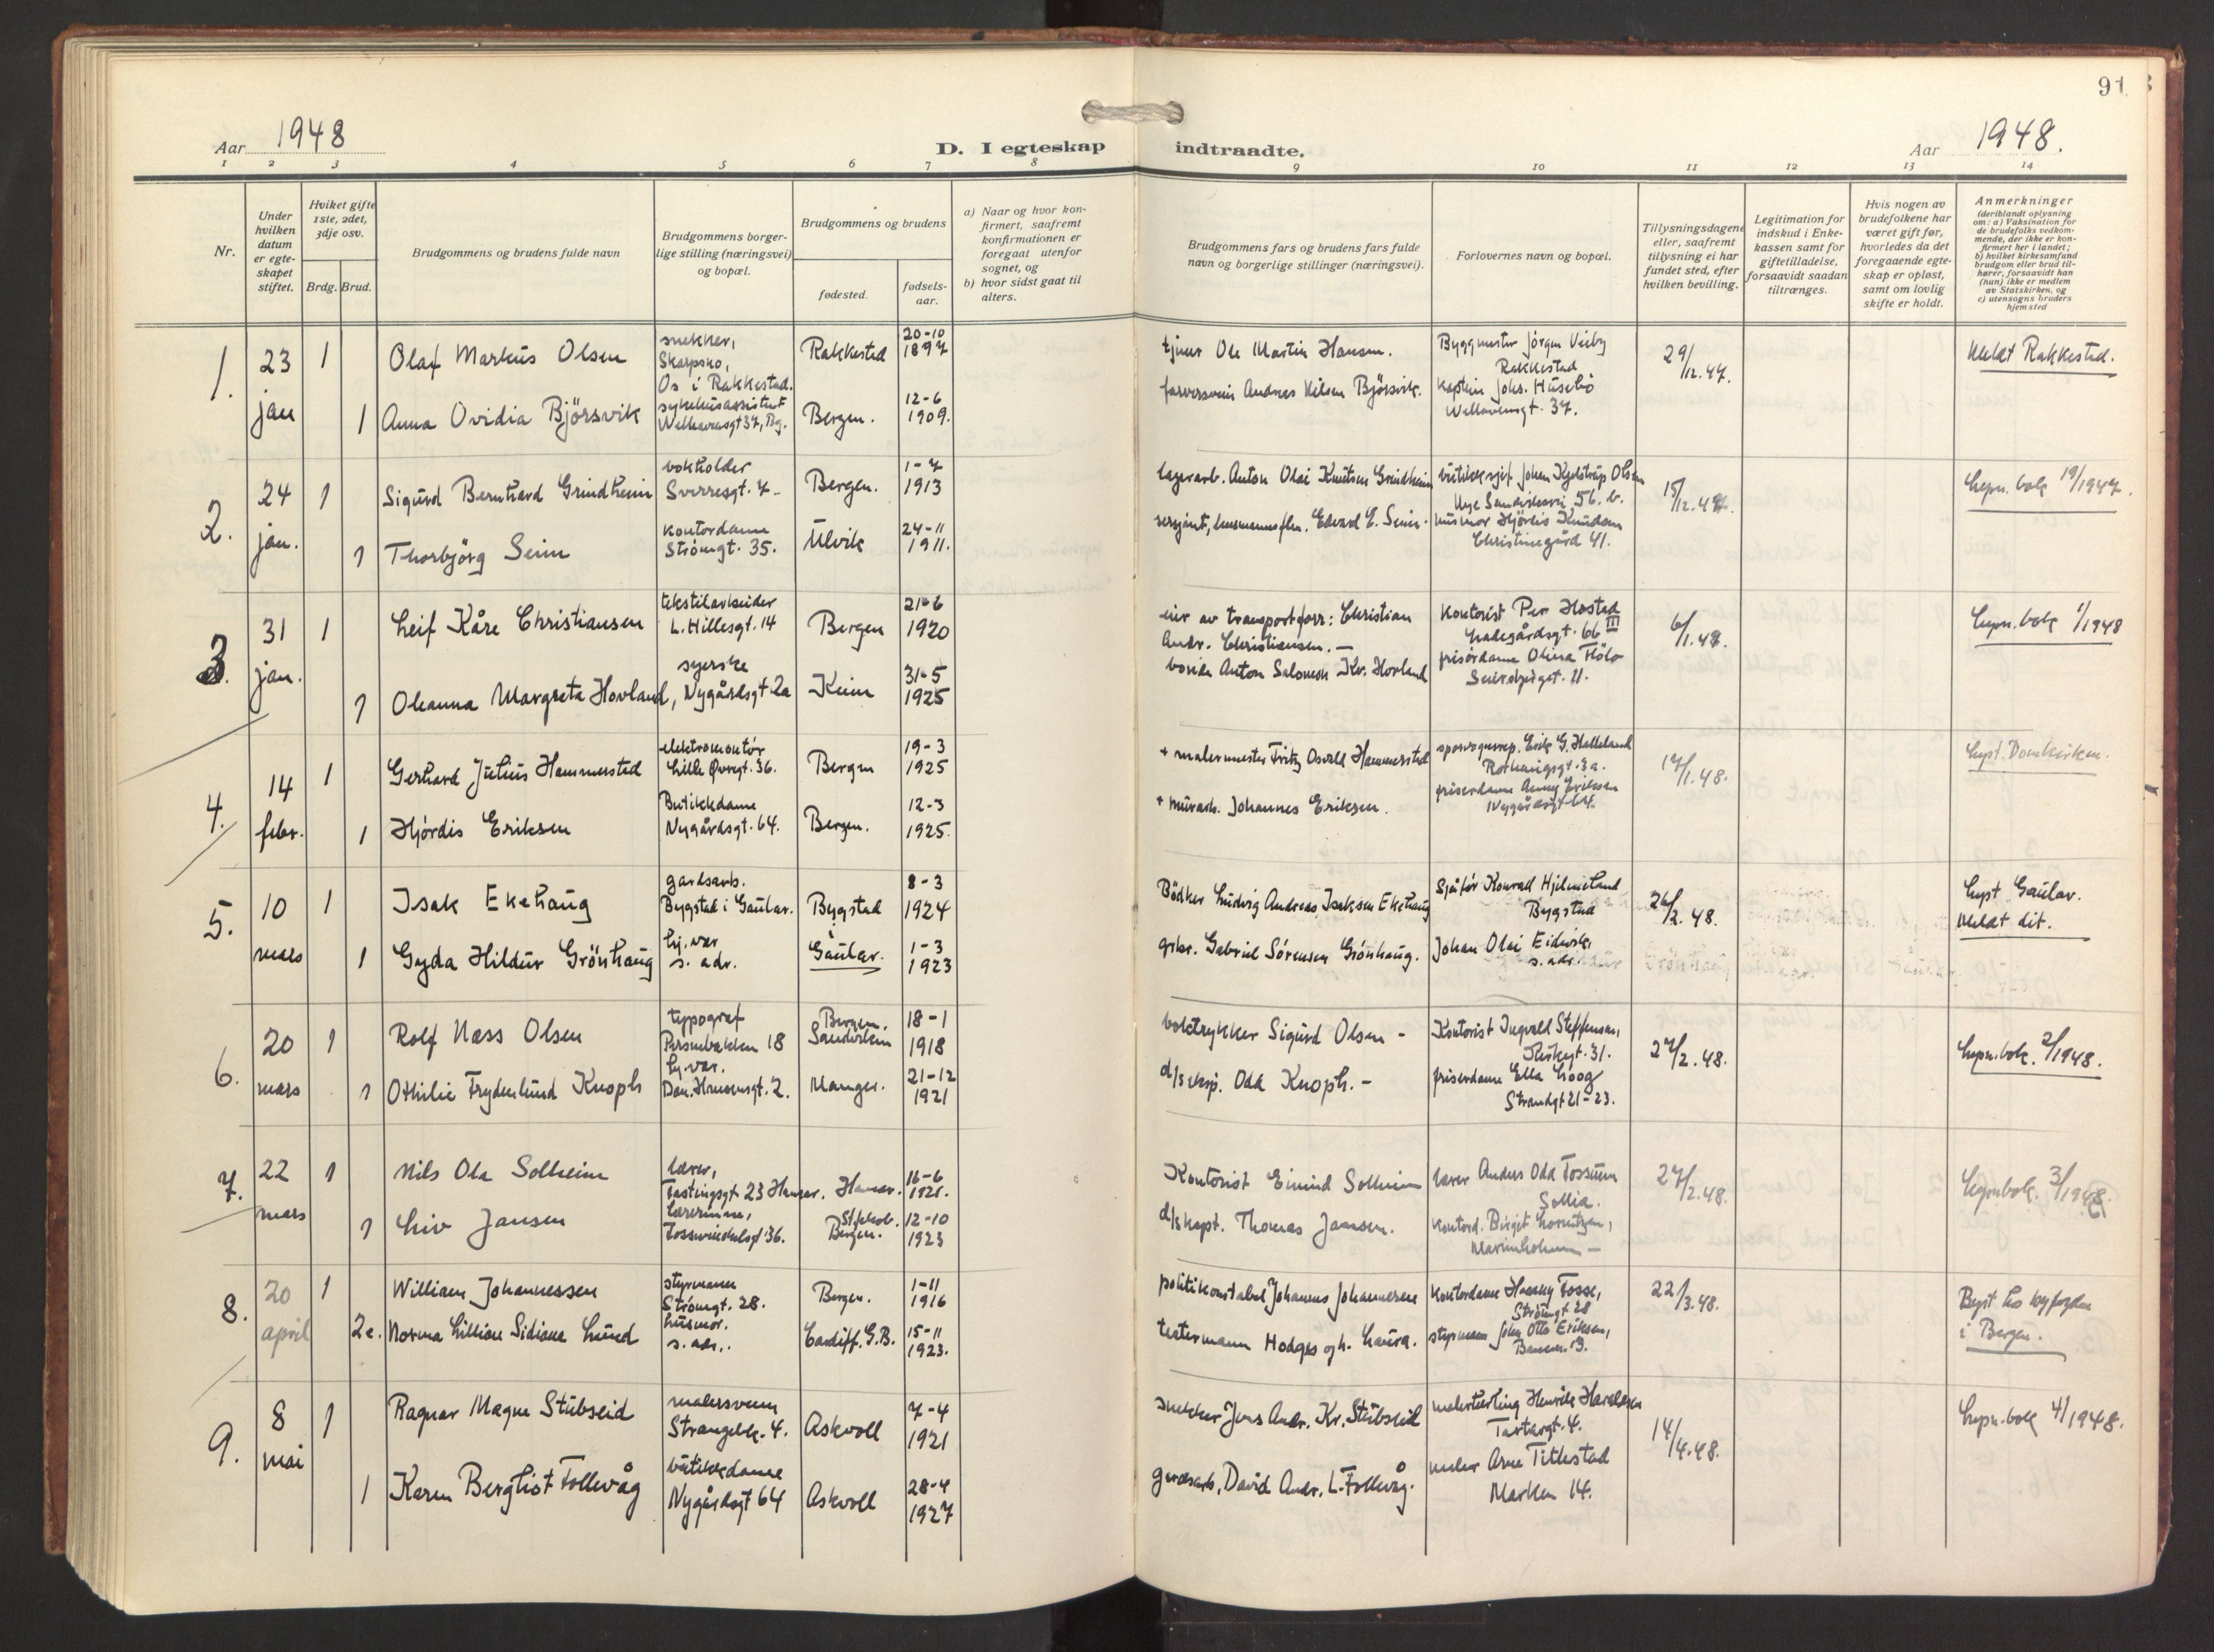 91
Aar 1948
D. I egteskap indtraadte.
Aar 1948.
1 2 3 4 5 6 7 8 9 10 11 12 13 14
Nr.
Under hvilken datum er egte-skapet stiftet.
Hviket gifte 1ste, 2det, 3dje osv.
Brdg. Brud.
Brudgommens og brudens fulde navn
Brudgommens borger-lige stilling (næringsvei) og bopæl.
Brudgommens og brudens
fødested.
fødsels-aar.
a) Naar og hvor kon-firmert, saafremt konfirmationen er foregaat utenfor sognet, og
b) hvor sidst gaat til alters.
Brudgommens fars og brudens fars fulde navn og borgerlige stillinger (næringsvei).
Forlovernes navn og bopæl.
Tillysningsdagene eller, saafremt tillysning ei har fundet sted, efter hvilken bevilling.
Legitimation for indskud i Enke-kassen samt for giftetilladelse, forsaavidt saadan tiltrænges.
Hvis nogen av brudefolkene har været gift før, hvorledes da det foregaaende egte-skap er opløst, samt om lovlig skifte er holdt.
Anmerkninger
(deriblandt oplysning om: a) Vaksination for de brudefolks vedkom-mende, der ikke er kon-firmert her i landet; b) hvilket kirkesamfund brudgom eller brud til-hører, forsaavidt han (hun) ikke er medlem av Statskirken, og c) utensogns bruders hjemsted
1. 23 jan 1
Olaf Markus Olsen
snekker, Skarpsno, Os i Rakkestad.
Rakkestad
20-10 1897
Ole Martin Hansen.
Byggmester Jörgen Veiby Rakkestad
29/12.47.
Meldt Rakkestad.
1 Anna Ovidia Björsvik
sykehusassistent Welhavensgt 37, Bg.
Bergen.
12-6 1909.
farversvein Andreas Nilsen Björsvik.
kaptein Johs. Husebö Welhavensgt. 37.
2. 24 jan. 1
Sigurd Bernhard Grindheim
bokholder Sverresgt. 7-
Bergen.
1-7 1913
lagerarb. Anton Olai Knutsen Grindheim
butikksjef Johan Kjeldstrup Olsen
56. b.
15/12.47.
Lysn. bok 19/1947.
1 Thorbjörg Seim
kontordame Strömgt. 35.
Ulvik
24-11 1911.
sersjant, Edvard E. Seim.
husmor Hjördis Knudsen Christinegård 41.
3. 31 jan. 1
Leif Kåre Christiansen
tekstilarbeider L. Hillesgt. 14
Bergen
21-6 1920
eier av transportforr: Christian Andr. Christiansen. —
Kontorist Per Hostad Ladegårdsgt. 66 III
6/1.48.
Lysn. bok 1/1948
1 Oleanna Margreta Hovland,
syerske Nygårdsgt. 2a
31-5 1925
bonde Anton Salomon Kr. Hovland
frisördame
4. 14 febr. 1
Gerhard Julius Hammersted
elektromontör Lille Øvregt. 36.
Bergen
19-3 1925
+ malermester Fritz Osvald Hammersted
Erik G. Helleland Rothaugsgt. 3a.
17/1.48.
Lyst. Domkirken.
1 Hjördis Eriksen
Butikkdame Nygårdsgt. 64.
Bergen.
12-3 1925.
+ murarb. Johannes Eriksen.
friserdame Anny Eriksen Nygårdsgt 64.
5. 10 mars 1
Isak Ekehaug
gardsarb. Bygstad i Gaular.
Bygstad i Gaular.
8-3 1924
Bödker Ludvig Andreas Isaksen Ekehaug
Sjåför Konrad Hjelmeland Bygstad
26/2.48.
Lyst Gaular. Meldt dit.
1 Gyda Hildur Grönhaug
hj. vær s. adr.
1-3 1923
grbr. Gabriel Sörensen Grönhaug.
Johan Olai Eidevik, s. adr.
6. 20 mars 1
Rolf Næss Olsen
typograf Persenbakken 18
Bergen. Sandviken
18-1 1918
boktrykker Sigurd Olsen -
Kontorist Ingvald Steffensen,
27/2.48.
Lysn. bok. 2/1948.
1 Othilie Frydenlund Knoph
hj. vær. Dan. Hansensgt. 2.
Manger.
21-12 1921
d/s eksp. Odd Knoph. -
friserdame Ella Loog Strandgt 21-23.
7. 22 mars 1
Nils Ola Solheim
lærer, Fæstningsgt. 23 Hamar.
Hamar.
16-6 1921.
Kontorist Eivind Solheim
lærer Anders Odd Fossum Sollia.
27/2.48.
Lysn. bok. 3/1948.
1 Liv Jansen
lærerinne, Fosswinckelsgt 36.
Bergen.
12-10 1923
d/s kapt. Thomas Jansen.
kontord. Birgit Marineholmen —
8. 20 april 1
William Johannessen
styrmann Strömgt. 28.
Bergen.
1-11 1916
politikonstabel Johannes Johannessen
kontordame Fosse, Strömgt 28
22/3.48.
Byst hos byfogden i Bergen.
2e. Norma Lillian Sidiana Lund
husmor. s. adr..
Cardiff. G.B.
15-11 1923.
Hodges og h. Laura.
styrmann John Otto Eriksen,
9. 8 mai 1
Ragnar Magne Stubseid
malersvenn Strangebk. 4.
Askvoll
7-4 1921
snekker Jens Andr. Kr. Stubseid
malerlærling Henrik
14/4.48.
Lysn. bok 4/1948.
1 Karen Bergliot Follevåg
butikkdame Nygårdsgt 64
Askvoll
28-4 1927
gardsarb. David Andr. L. Follevåg.
maler Arne Titlestad Marken 14.